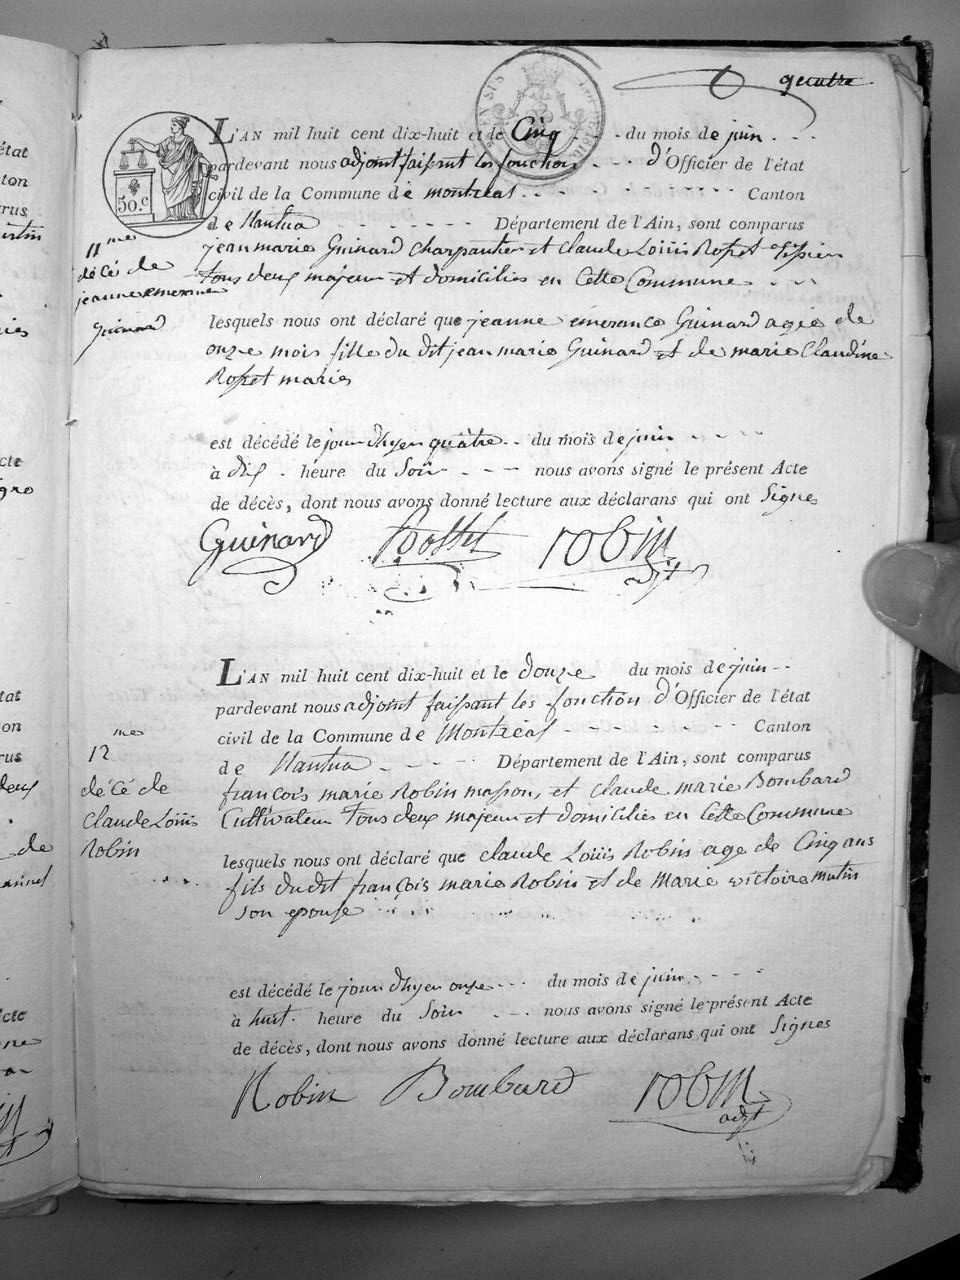 quatre
L'AN mil huit cent dix-huit et le Cinq du mois de juin
pardevant nous adjoint faisant les fonctions d'Officier de l'état
civil de la Commune de montreal Canton
de Nantua Département de l'Ain, sont comparus
jean marie Guinard Charpantier et Claude Loüis Rosset
tous deux majeur et domiciliés en Cette Commune
50.c
11me
décé de
jeanne emerance
Guinard
lesquels nous ont déclaré que jeanne emerance Guinard agée de
onze mois fille du dit jean marie Guinard et de marie Claudine
Rosset mariés
est décédé le jour d'hyer quâtre du mois de juin
à dix heure du Soir nous avons signé le présent Acte
de décès, dont nous avons donné lecture aux déclarans qui ont Signés
Guinard Rosset robin
adjt
L'AN mil huit cent dix-huit et le douze du mois de juin
pardevant nous adjoint faissant les fonction d'Officier de l'état
civil de la Commune de Montréal Canton
de Nantua Département de l'Ain, sont comparus
françois marie Robin masson, et claude marie Bombard
Cultivateur tous deux majeur et domiciliés en Cette Commune
12me
décé de
Claude Loüis
Robin
lesquels nous ont déclaré que claude Loüis Robin age de Cinq ans
fils du dit françois marie Robin et de Marie victoire mutin
son epouse
est décédé le jour d'hyer onze du mois de juin
à huit heure du Soir nous avons signé le présent Acte
de décès, dont nous avons donné lecture aux déclarans qui ont Signés
Robin Bombard robin
adjt